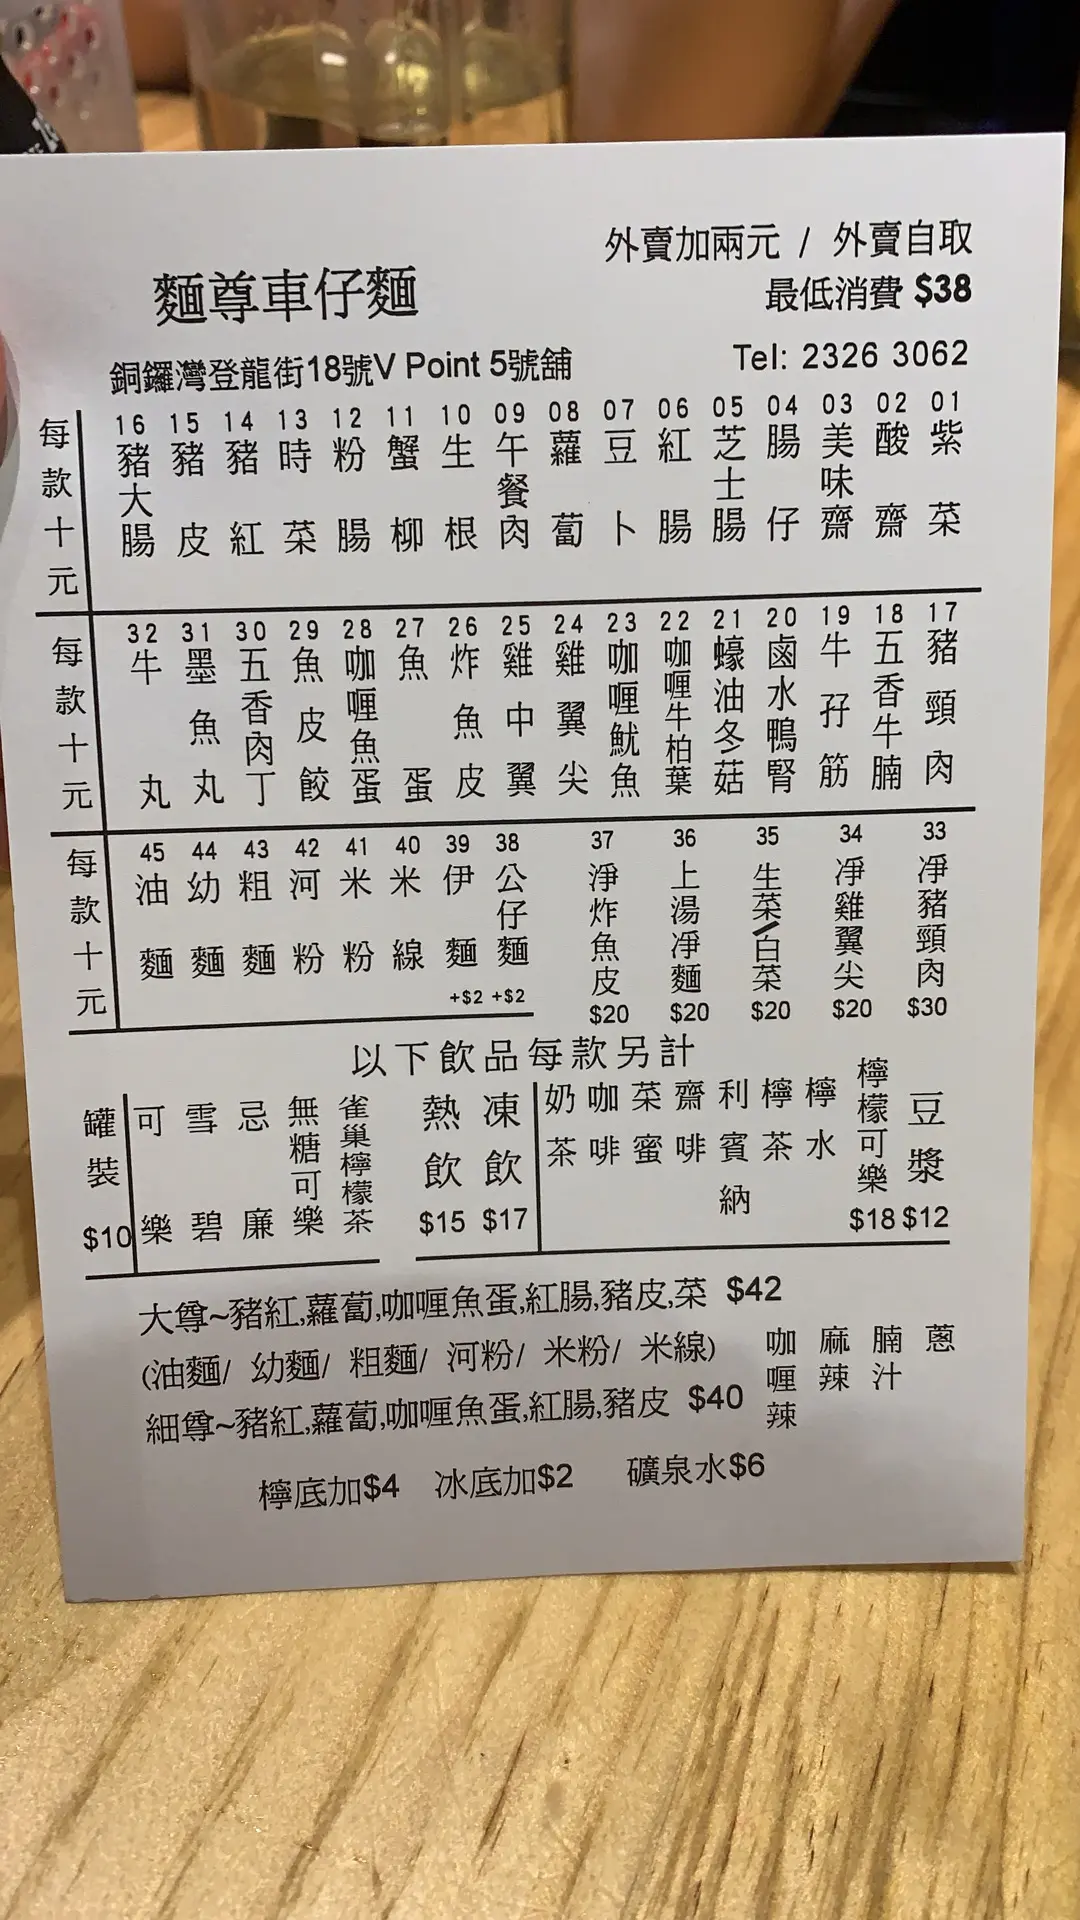 外賣加兩元 / 外賣自取
麵尊車仔麵
最低消費 $38
銅鑼灣登龍街18號V Point 5號舖
Tel: 2326 3062
每款十元
01 紫菜
02 酸齋
03 美味齋
04 腸仔
05 芝士腸
06 紅腸
07 豆卜
08 蘿蔔
09 午餐肉
10 生根
11 蟹柳
12 粉腸
13 時菜
14 豬紅
15 豬皮
16 豬大腸
每款十元
17 豬頸肉
18 五香牛腩
19 牛孖筋
20 鹵水鴨腎
21 蠔油冬菇
22 咖喱牛柏葉
23 咖喱魷魚
24 雞翼尖
25 雞中翼
26 炸魚皮
27 魚蛋
28 咖喱魚蛋
29 魚皮餃
30 五香肉丁
31 墨魚丸
32 牛丸
每款十元
33 凈豬頸肉 $30
34 凈雞翼尖 $20
35 生菜/白菜 $20
36 上湯凈麵 $20
37 淨炸魚皮 $20
38 公仔麵 +$2
39 伊麵 +$2
40 米線
41 米粉
42 河粉
43 粗麵
44 幼麵
45 油麵
以下飲品每款另計
豆漿 $12
檸檬可樂 $18
檸水
檸茶
利賓納
齋啡
菜蜜
咖啡
奶茶
凍飲 $17
熱飲 $15
雀巢檸檬茶
無糖可樂
忌廉
雪碧
可樂
罐裝 $10
大尊~豬紅,蘿蔔,咖喱魚蛋,紅腸,豬皮,菜 $42
(油麵/ 幼麵/ 粗麵/ 河粉/ 米粉/ 米線)
細尊~豬紅,蘿蔔,咖喱魚蛋,紅腸,豬皮 $40
蔥
腩汁
麻辣
咖喱辣
檸底加$4 冰底加$2 礦泉水$6